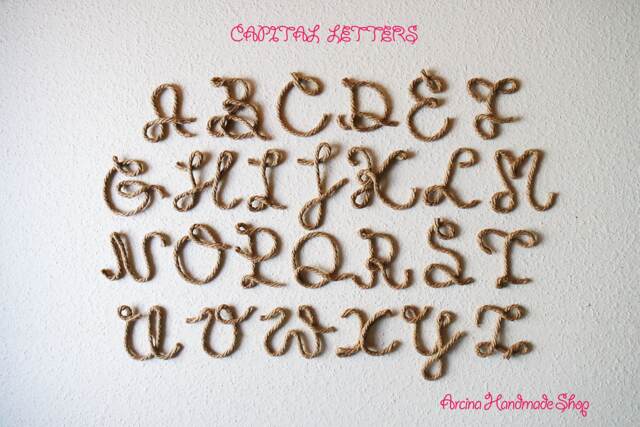 CAPITAL LETTERS
A B C D E F
G H I J K L M
N O P Q R S T
U V W X Y Z
Arcina Handmade Shop